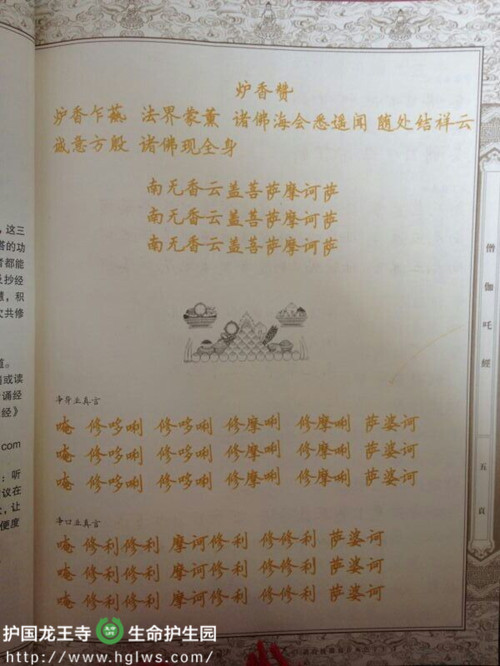 炉香赞
炉香乍爇 法界蒙薰 诸佛海会悉遥闻 随处结祥云
诚意方殷 诸佛现全身
南无香云盖菩萨摩诃萨
南无香云盖菩萨摩诃萨
南无香云盖菩萨摩诃萨
净身业真言
唵 修哆唎 修哆唎 修摩唎 修摩唎 萨婆诃
唵 修哆唎 修哆唎 修摩唎 修摩唎 萨婆诃
唵 修哆唎 修哆唎 修摩唎 修摩唎 萨婆诃
净口业真言
唵 修利修利 摩诃修利 修修利 萨婆诃
唵 修利修利 摩诃修利 修修利 萨婆诃
唵 修利修利 摩诃修利 修修利 萨婆诃
僧伽吒經
五頁
，这三
的功
都能
抄经
，积
次共修
道。
或读
诵经
经》
com
：听
议在
，让
便度
护国龙王寺 生命护生园
http://www.hglws.com